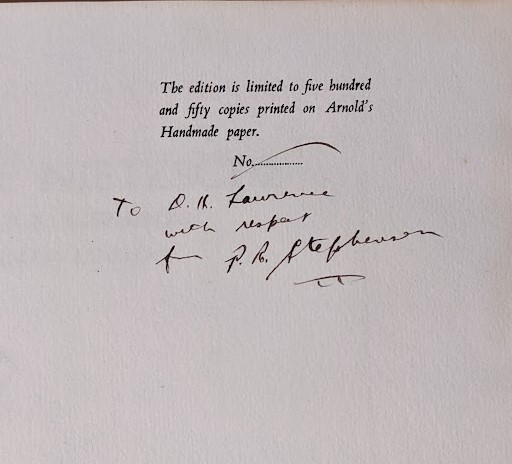 The edition is limited to five hundred
and fifty copies printed on Arnold's
Handmade paper.
No...................
To D. H. Lawrence
with respect
from P. R. Stephensen